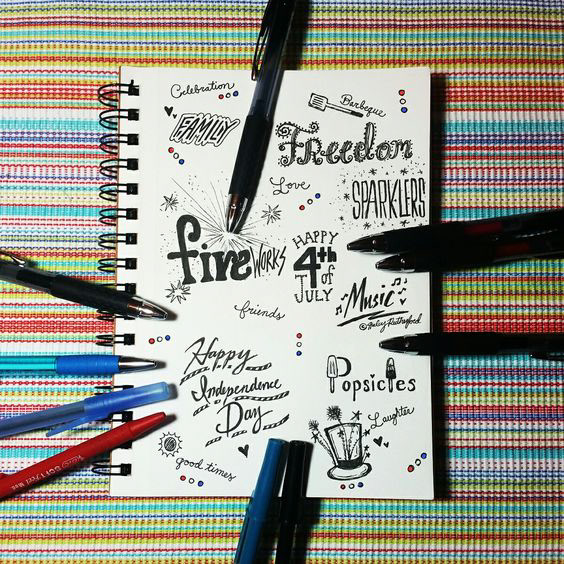 Celebration
Barbeque
FAMILY
FReedom
Love
SPARKLERS
fireWORKS
HAPPY
4th
of
JULY
Music
friends
Happy
Independence
Day
Popsicles
Laughter
good times